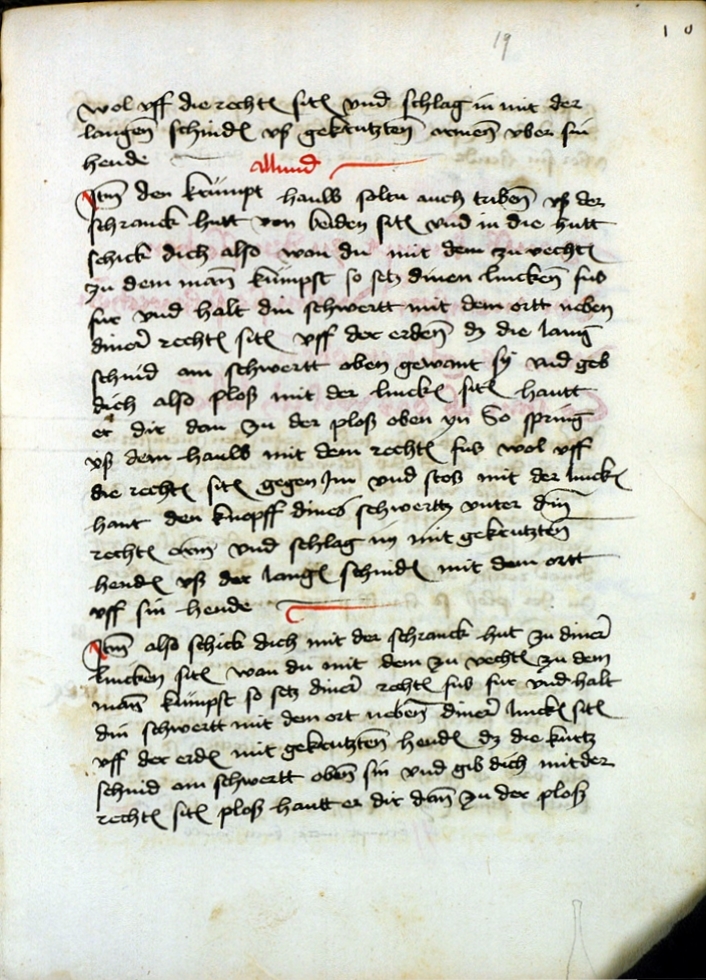 19
10
wol vff die rechtẽ sitẽ vnd schlag in mit der
langen̄ schnidẽ vß gekrutzten̄ armen̄ vber sin
hende
Aliud
Itm̄ den krumpt hauw soltu auch triben̄ vß der
schranck hutt von beiden sitẽ vnd in die hutt
schick dich also wan du mit dem zu vechtẽ
zu dem man̄ kumpst so setz dinen lincken̄ fus
fur vnd halt din schwertt mit dem ortt neben
diner̄ rechtẽ sitẽ vff der erden̄ dz die lang
schnid am schwertt oben gewant sy vnd geb
dich also ploß mit der linckẽ sitẽ hautt
er dir dan zu der ploß oben yn So spring
vß dem hauw mit dem rechtẽ fus wol vff
die rechtẽ sitẽ gegen Im vnd stoß mit der linckẽ
hant den knopff dines schwertz vnter din̄
rechtẽ arm vnd schlag in mit gekrutzten̄
hendẽ vß der langẽ schnidẽ mit dem ortt
vff sin hende
Itm̄ also schick dich mit der schranck hut zu diner̄
lincken sitẽ wan du mit dem zu vechtẽ zu dem
man̄ kumpst so setz diner̄ rechtẽ fus fur vnd halt
din schwertt mit dem ort neben̄ diner̄ linckẽ sitẽ
vff der erdẽ mit gekrutzten̄ hendẽ dz die kurtz
schnid am schwertt oben̄ sin vnd gib dich mit der
rechtẽ sitẽ ploß hautt er dir dan̄ zu der ploß